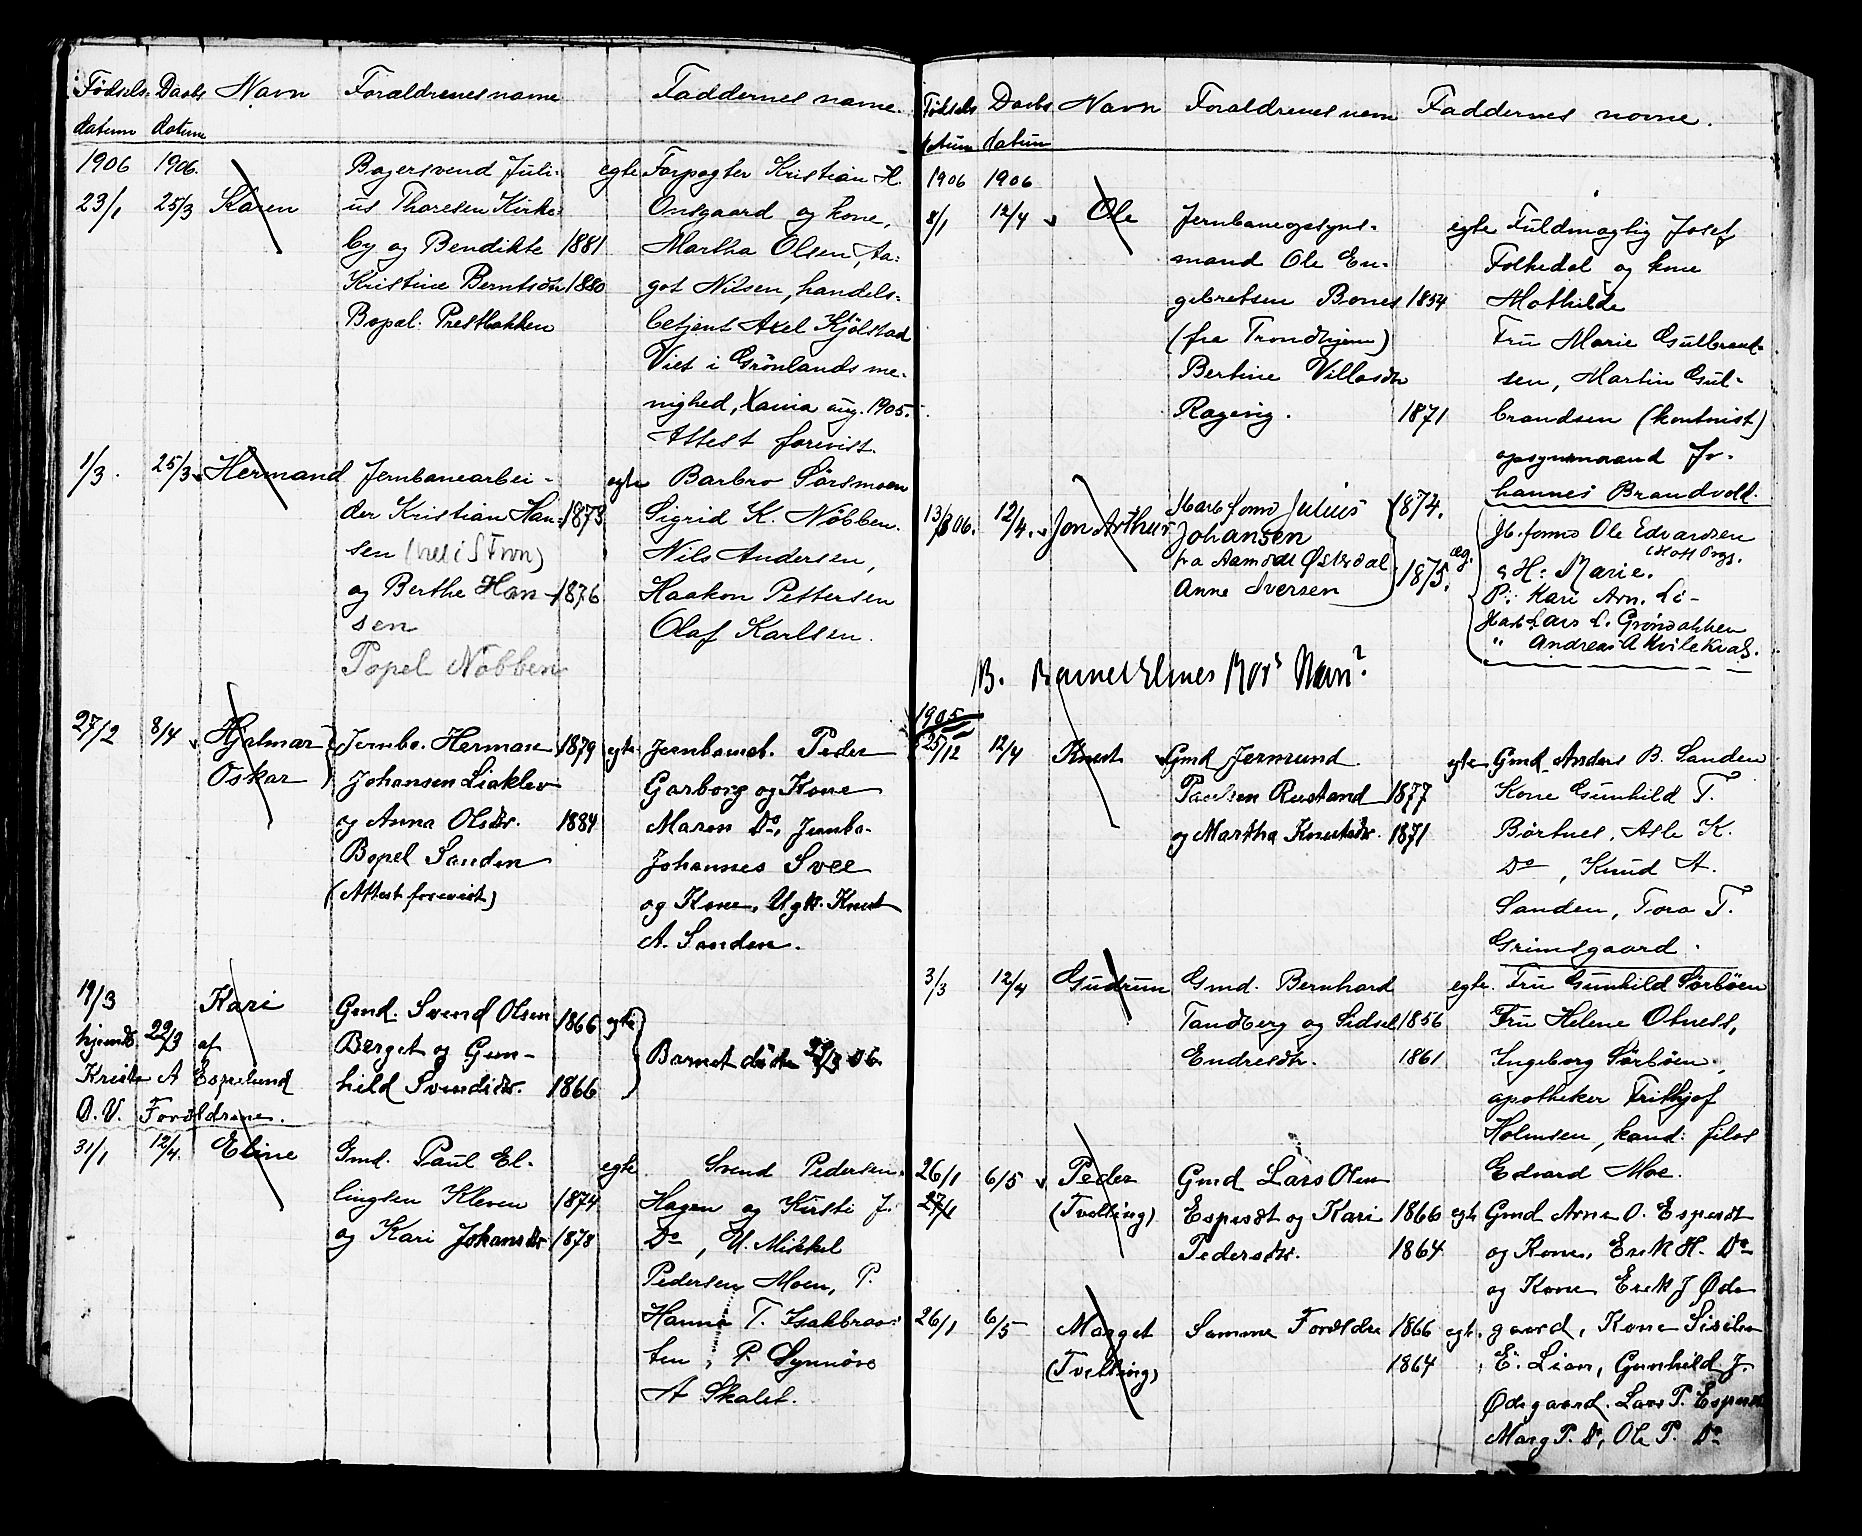 Fødsels- Daabs Navn Forældrenes navne Faddernes navne.
datum datum
1906 1906. Bagersvend Juli- egte Forpagter Kristian H.
23/1 25/3 Karen us Thoresen Kirke- Onsgaard og kone,
by og Bendikte 1881 Martha Olsen, Aa-
Kristine Berntsdtr 1880 got Nilsen, handels-
Bopæl: Prestbakken betjent Axel Kjølstad
Viet i Grønlands me-
nighed, Xania aug. 1905.
Attest forevist.
1/3. 25/3 Hermand Jernbanearbei- egte Barbro Sørsmoen
der Kristian Han- 1873 Sigrid K. Nøbben.
sen (viet i S Fron) Nils Andersen,
og Berthe Han- 1876 Haakon Pettersen
sen Olaf Karlsen.
Bopel Nøbben
27/2 8/4 Hjalmar Jernba. Herman 1879 egte Jernbaneb. Peder
Oskar Johansen Liaklev Garborg og Kone
og Anna Olsdtr. 1884 Maren Do, Jernba.
Bopel Sanden Johannes Svee
(Attest forevist) og Kone, Ugk. Knut
A. Sanden.
19/3 Kari Gmd. Svend Olsen 1866 egte
hjemdb. 22/3 af Berget og Gun- Barnet døde 06
Kristi A Espelund hild Svendsdtr. 1866
O. V. Forældrene.
31/1 12/4. Eline Gmd. Paul El- egte Svend Pedersen
lingsen Kleven 1874 Hagen og Kirsti J.
og Kari Johansdtr 1878 Do, U. Mikkel
Pedersen Moen, P.
Hanna T. Isakbraa-
ten, P. Synnøve
A Skalet.
Fødsels Daabs Navn Forældrenes navn Faddernes navne.
datum datum
1906 1906
8/1 12/4 Ole Jernbaneopsyns- egte Fuldmægtig Josef
mand Ole En- Folkedal og kone
gebretsen Bones 1854 Mathilde
(fra Trondhjem) Fru Marie Gulbrand-
Bertine Villasdtr sen, Martin Gul-
Ragevig. 1871 brandsen (kontorist)
opsynsmand Jo-
hannes Brandvold.
13/3 06. 12/4. Jon Arthur Julius 1874. Jb. formd Ole Edvardsen
Johansen æg.
fra Aamodt Østerdal 1875. & H: Marie.
Anne Iversen P: Kari Arn. Li-
Lars L. Grønbakken
" Andreas A Kvilekval.
B. Barnet Elines Mors Navn?
1905
25/12 12/4 Knut Gmd Jermund egte Gmd. Anders B. Sanden
Paulsen Rustand 1877 Kone Gunhild T.
og Martha Knutsdtr. 1871 Børtnes, Asle K.
Do, Knud A.
Sanden, Tora T.
Grimsgaard.
3/3 12/4 Gudrun Gmd. Bernhard egte. Fru Gunhild Sørbøen
Tandberg og Sidsel 1856 Fru Helene Otness,
Endresdtr. 1861 Ingeborg Sørbøen,
apotheker Frithjof
Holmsen, kand. filos
26/1 6/5 Peder Gmd Lars Olsen Edvard Moe.
27/1 (Tvilling) Espesdt og Kari 1866 egte Gmd Arne O. Espesdt
Pedersdtr. 1864 og Kone, Erik H. Do
og Kone Erik J Øde-
26/1 6/5 Marget Samme Forældre 1866 egte. gaard, Kone Sisilie
(Tvilling) 1864 E. Lien, Gunhild J.
Ødegaard. Lars P. Espesdt
Marg P. Do, Ole P. Do